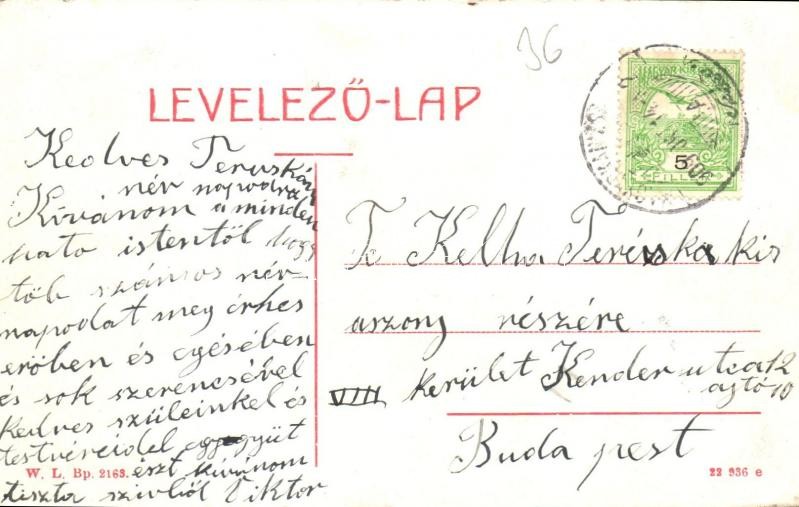 36
LEVELEZŐ-LAP
MAGYAR KIR
5
FILLÉR
909
Kedves Teruskám
név napodra
Kívánom a minden
hato istentöl hogy
töb számos név
napodat meg érhes
eröben és egésében
és sok szerencsével
Kedves szüleinkel és
testvéreidel egygyüt
észt kivánom
tiszta szivböl Viktor
W. L. Bp. 2163.
T. Kelha Terézska kis
aszony részére
VIII kerület Kender utca 12
ajtó 10
Buda pest
22 936 e